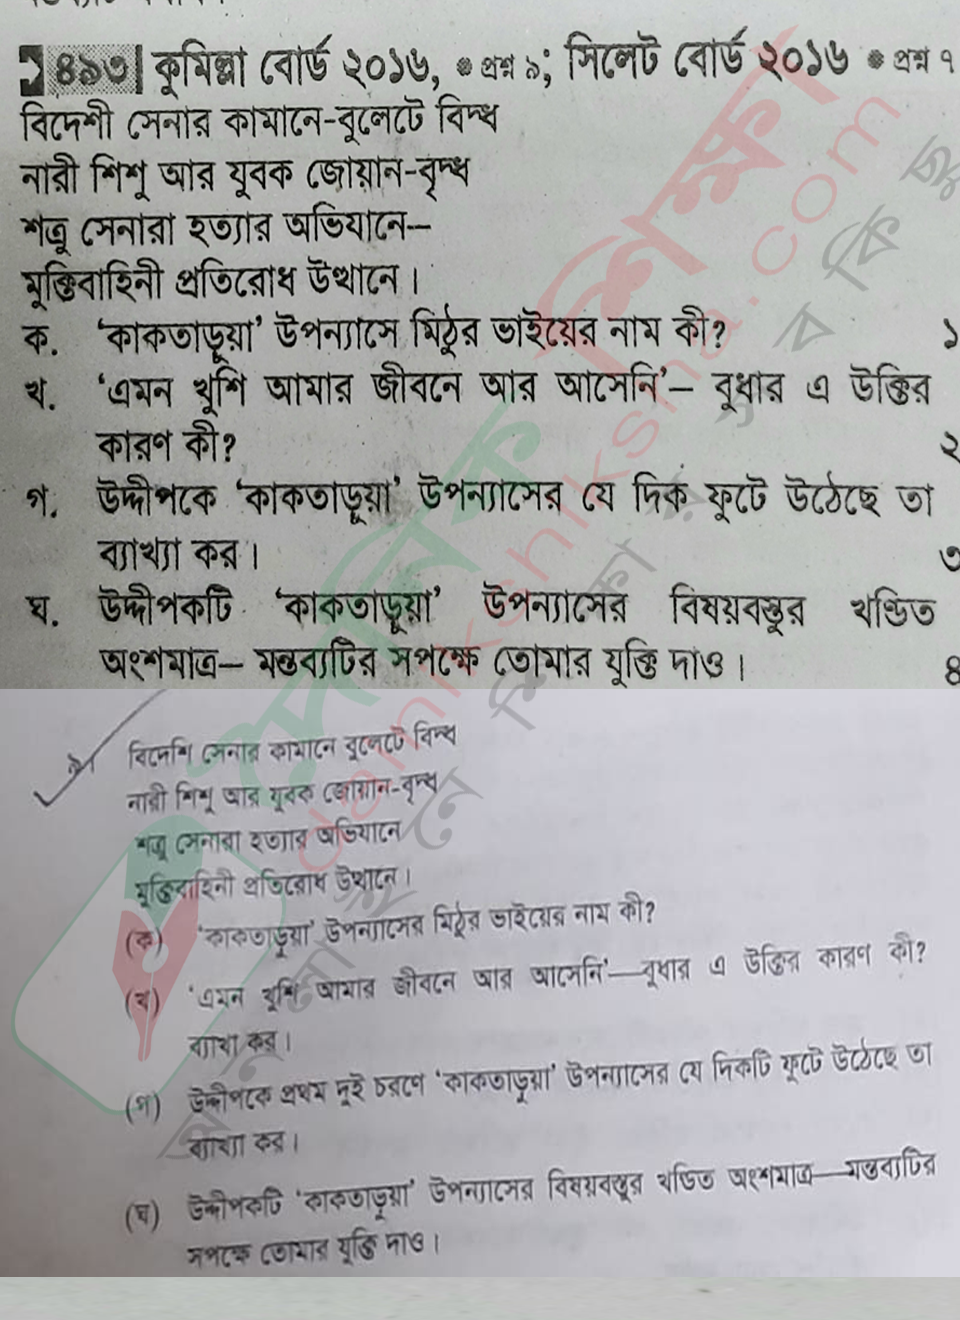 ৪৯৩ কুমিল্লা বোর্ড ২০১৬, ● প্রশ্ন ৯; সিলেট বোর্ড ২০১৬ ● প্রশ্ন ৭
বিদেশী সেনার কামানে-বুলেটে বিদ্ধ
নারী শিশু আর যুবক জোয়ান-বৃদ্ধ
শত্রু সেনারা হত্যার অভিযানে—
মুক্তিবাহিনী প্রতিরোধ উত্থানে।
ক. ‘কাকতাড়ুয়া’ উপন্যাসে মিঠুর ভাইয়ের নাম কী? ১
খ. ‘এমন খুশি আমার জীবনে আর আসেনি’— বুধার এ উক্তির
কারণ কী? ২
গ. উদ্দীপকে ‘কাকতাড়ুয়া’ উপন্যাসের যে দিক ফুটে উঠেছে তা
ব্যাখ্যা কর। ৩
ঘ. উদ্দীপকটি ‘কাকতাড়ুয়া’ উপন্যাসের বিষয়বস্তুর খণ্ডিত
অংশমাত্র— মন্তব্যটির সপক্ষে তোমার যুক্তি দাও। ৪
৯। বিদেশি সেনার কামানে বুলেটে বিদ্ধ
নারী শিশু আর যুবক জোয়ান-বৃদ্ধ
শত্রু সেনারা হত্যার অভিযানে
মুক্তিবাহিনী প্রতিরোধ উত্থানে।
(ক) ‘কাকতাড়ুয়া’ উপন্যাসের মিঠুর ভাইয়ের নাম কী?
(খ) ‘এমন খুশি আমার জীবনে আর আসেনি’—বুধার এ উক্তির কারণ কী?
ব্যাখা কর।
(গ) উদ্দীপকে প্রথম দুই চরণে ‘কাকতাড়ুয়া’ উপন্যাসের যে দিকটি ফুটে উঠেছে তা
ব্যাখ্যা কর।
(ঘ) উদ্দীপকটি ‘কাকতাড়ুয়া’ উপন্যাসের বিষয়বস্তুর খণ্ডিত অংশমাত্র—মন্তব্যটির
সপক্ষে তোমার যুক্তি দাও।
দৈনিক শিক্ষা
dainikshiksha.com